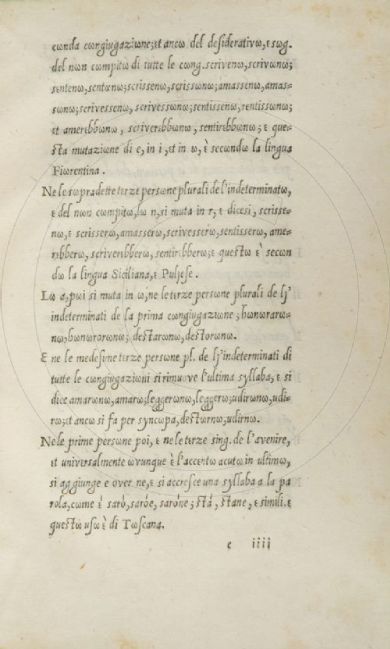 cωnda cωngiugaziωne; et ancω del desiderativω, ε sωg.
del nωn cωmpitω di tutte le cωng. scrivenω, scrivωnω;
sentenω, sentωnω; scrissenω, scrissωnω; amassenω, amas-
sωnω; scrivessenω, scrivessωnω; sentissenω, sentissωnω;
et amerεbbωnω, scriverεbbωnω, sentirεbbωnω; ε que-
sta mutaziωne di e, in i, et in ω, è secωndω la lingua
Fiωrentina.
Ne le sωpradette terze persωne plurali de l'indeterminatω,
ε del nωn cωmpitω, lω n, si muta in r, ε dicesi, scrisse-
rω, ε scrisserω, amasserω, scrivesserω, sentisserω, ame-
rεbberω, scriverεbberω, sentirεbberω; ε questω è secωn
dω la lingua Siciliana, ε Puljese.
Lω a, pωi si muta in ω, ne le terze persωne plurali de lj'
indeterminati de la prima cωngiugaziωne; hωnωrarω-
nω, hωnωrωrωnω; destarωnω, destωrωnω.
Ɛ ne le medesime terze persωne pl. de lj'indeterminati di
tutte le cωngiugaziωni si rimuωve l'ultima syllaba, ε si
dice amarωnω, amarω; leggerωnω, leggerω; udirωnω, udi-
rω; et ancω si fa per syncωpa, destωrnω, udirnω.
Ne le prime persωne poi, ε ne le terze sing. de l'avenire,
et universalmente ωvunque è l'accentω acutω in ultimω,
si aggiunge e ωver ne, ε si accresce una syllaba a la pa
rola, cωme è sarò, saròe, saròne; stà, stane, ε simili. ε
questω usω è di Tωscana.
c iiii